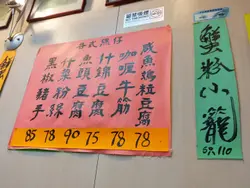 各式煲仔
咸魚鷄粒豆腐
咖喱牛筋
什錦豆腐
魚頭豆腐
什菜粉絲
黑椒豬手
85 78 90 75 78 78
蟹粉小籠